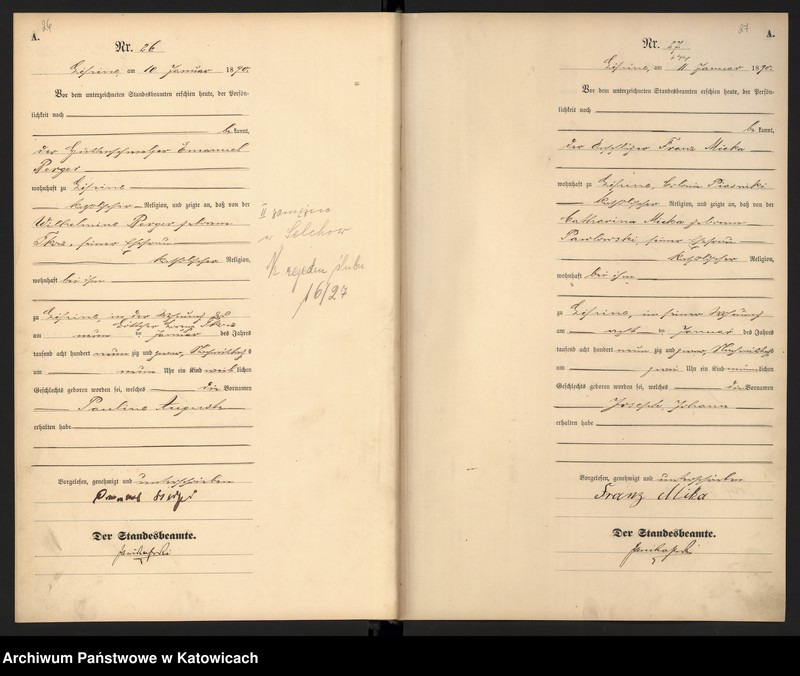 26
A.
Nr. 26
am 10 Januar 1890.
Vor dem unterzeichneten Standesbeamten erschien heute, der Persön-
lichkeit nach
be kannt,
der Emanuel
Perger
wohnhaft zu
katholischer Religion, und zeigte an, daß von der
Wilhelmine Perger geborene
seiner Ehefrau
katholischer Religion,
wohnhaft bei ihm
zu in der Wohnung des
am neun ten Januar des Jahres
tausend acht hundert neun zig und zwar Nachmittags
um neun Uhr ein Kind weib lichen
Geschlechts geboren worden sei, welches die Vornamen
Pauline Auguste
erhalten habe
Vorgelesen, genehmigt und unterschrieben
Der Standesbeamte.
II
w Selchow
16/27
27
A.
Nr. 27
am 11 Januar 1890.
Vor dem unterzeichneten Standesbeamten erschien heute, der Persön-
lichkeit nach
be kannt,
der Franz Micka
wohnhaft zu Colonie Piasniki
katholischer Religion, und zeigte an, daß von der
Catharina Micka geborene
Pawlowski, seiner Ehefrau
katholischer Religion,
wohnhaft bei ihm
zu in seiner Wohnung
am acht ten Januar des Jahres
tausend acht hundert neun zig und zwar Nachmittags
um zwei Uhr ein Kind männ lichen
Geschlechts geboren worden sei, welches die Vornamen
Joseph, Johann
erhalten habe
Vorgelesen, genehmigt und unterschrieben
Franz Mika
Der Standesbeamte.
Archiwum Państwowe w Katowicach